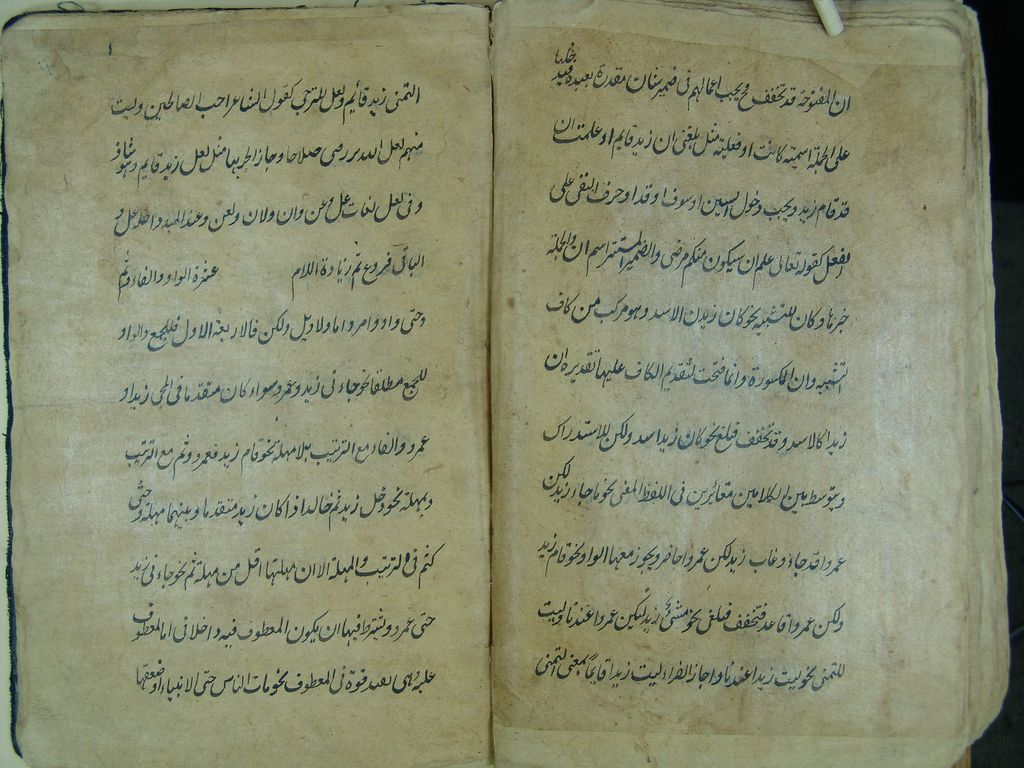 ان المفتوحة قد تخفف و یجب اعمالهم فی ضمیر شان مقدرة بعیده فید خلها
علی الجملة اسمیته کانت او فعلیته مثل بلغنی ان زید قایم او علمت ان
قد قام زید و یجب دخول السین او سوف او قد او حرف النفی علی
الفعل کقوله تعالی علم ان سیکون منکم مرضی والضمیر المستتر اسم ان والجملة
خبرها و کان للتشبیه نحو کان زیدن الاسد و هو مرکب من کاف
التشبیه وان المکسورة وانما فتحت لتقدیم الکاف علیها تقدیره ان
زیدا کالاسد و قد تخفف فیلغ نحو کان زید اسد ولکن للاستدراک
و یتوسط بین الکلامین متغایرین فی اللفظ المعنی نحو ما جاء زید لکن
عمروا قد جاء و غاب زید لکن عمروا حاضر و یجوز معها الواو نحو قام زید
ولکن عمروا قاعد فتخفف فیلغی نحو مشی زید لکن عمروا عندنا ولیت
للتمنی نحو لیت زیدا عندنا و اجاز الفراء لیت زیدا قایما بمعنی التمنی
التمنی زید قائیم ولعل للترجی کقول الشاعر احب الصالحین ولیت
منهم لعل الله یرزقنی صلاحا و جاز الجر بها مثل لعل زید قایم و هو شاذ
و فی لعل لغات عل و عن و ان و لان و لعن و عند المبرد اصله عل و
الباقی فروع ثم زیادة اللام عشرة الواو والفاء و ثم
و حتی و او و ام و اما و لا و بل و لکن فالاربعة الاول للجمع والواو
للجمع مطلقا نحو جاءنی زید و عمرو سواء کان متقدما فی المجی زید او
عمرو والفاء مع الترتیب بلا مهلة نحو قام زید فعمرو و ثم مع الترتیب
و بمهلة نحو دخل زید ثم خالد اذا کان زید متقدما و بینهما مهلة و حتی
کثم فی الترتیب والمهلة الا ان مهلتها اقل من مهلة ثم نحو جاءنی زید
حتی عمرو و یشترط فیها ان یکون المعطوف فیه داخلا فی المعطوف
علیه وهی تفید قوة فی المعطوف نحو مات الناس حتی الانبیاء او ضعفها